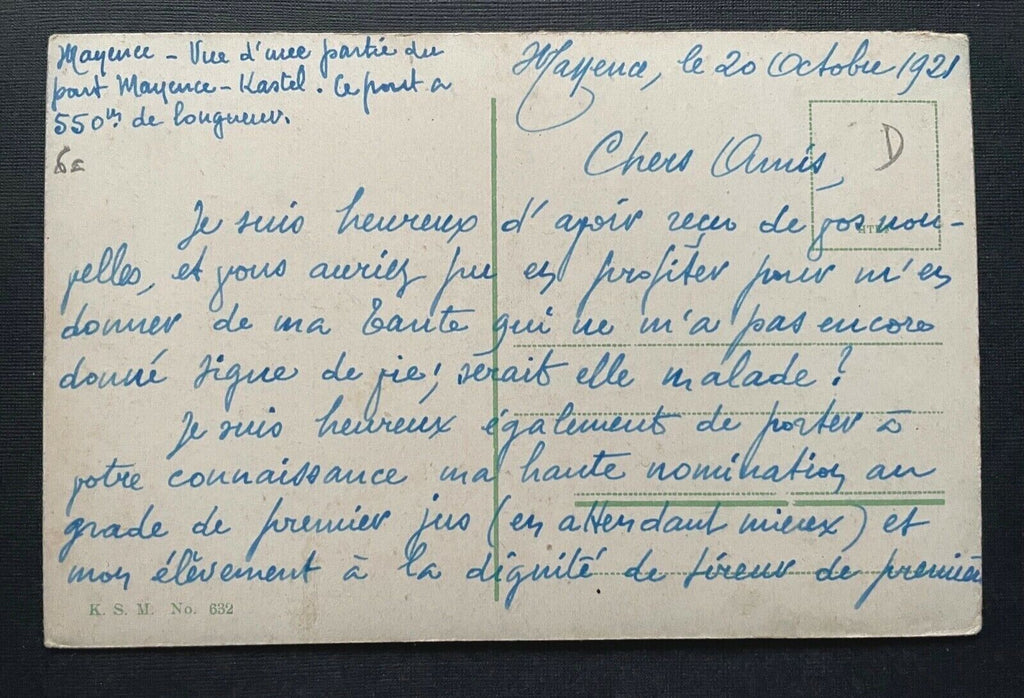 Mayence – Vue d'une partie du
pont Mayence-Kastel. Ce pont a
550m de longueur.
Mayence, le 20 Octobre 1921
D
Chers Amis,
Je suis heureux d'avoir reçu de vos nou-
velles, et vous auriez pu en profiter pour m'en
donner de ma Tante qui ne m'a pas encore
donné signe de vie; serait elle malade?
Je suis heureux également de porter à
votre connaissance ma haute nomination au
grade de premier jus (en attendant mieux) et
mon élèvement à la dignité de tireur de première
K. S. M. No. 632